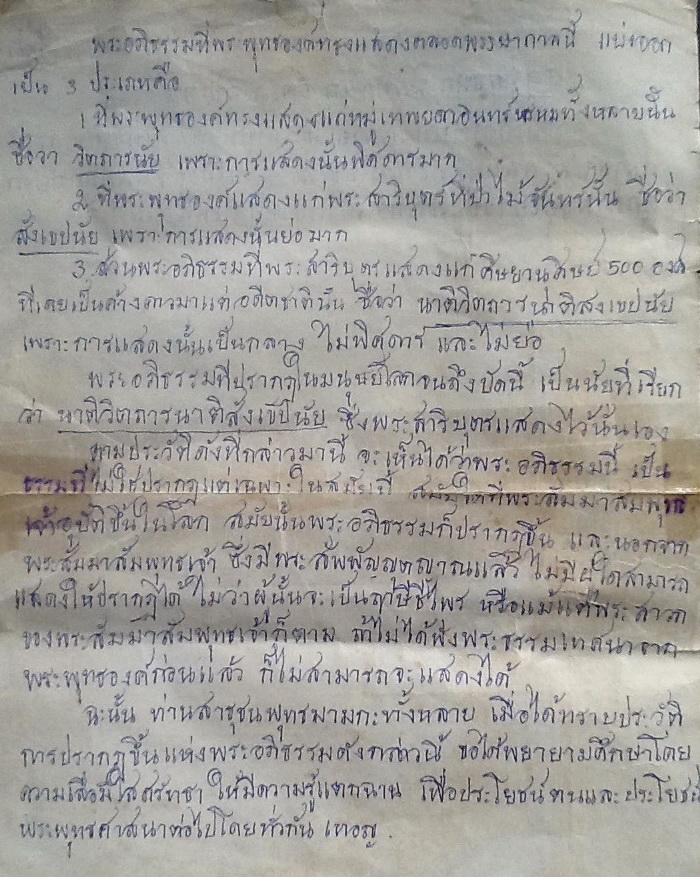 พระอภิธรรมที่พระพุทธองค์ทรงแสดงตลอดพรรษากาลนี้ แบ่งออก
เป็น 3 ประเภทคือ
1. ที่พระพุทธองค์ทรงแสดงแก่หมู่เทพยดาอินทร์พรหมทั้งหลายนั้น
ชื่อว่า วิตถารนัย เพราะการแสดงนั้นพิศดารมาก
2. ที่พระพุทธองค์แสดงแก่พระสาริบุตรที่ป่าไม้จันทร์นั้น ชื่อว่า
สังเขปนัย เพราะการแสดงนั้นย่อมาก
3. ส่วนพระอภิธรรมที่พระสาริบุตรแสดงแก่ศิษยานุศิษย์ 500 องค์
ที่เคยเป็นค้างคาวมาแต่อดีตชาตินั้น ชื่อว่า นาติวิตถารนาติสังเขปนัย
เพราะการแสดงนั้นเป็นกลาง ไม่พิศดาร และไม่ย่อ
พระอภิธรรมที่ปรากฏในมนุษย์โลกจนถึงบัดนี้ เป็นนัยที่เรียก
ว่า นาติวิตถารนาติสังเขปนัย ซึ่งพระสาริบุตรแสดงไว้นั้นเอง
ตามประวัติดังที่กล่าวมานี้ จะเห็นได้ว่าพระอภิธรรมนี้ เป็น
ธรรมที่ไม่ใช่ปรากฏแต่เฉพาะในสมัยนี้ สมัยใดที่พระสัมมาสัมพุทธ
เจ้าอุบัติขึ้นในโลก สมัยนั้นพระอภิธรรมก็ปรากฏขึ้น และนอกจาก
พระสัมมาสัมพุทธเจ้า ซึ่งมีพระสัพพัญญุตญาณแล้ว ไม่มีผู้ใดสามารถ
แสดงให้ปรากฏได้ ไม่ว่าผู้นั้นจะเป็นฤาษีชีไพร หรือแม้แต่พระสาวก
ของพระสัมมาสัมพุทธเจ้าก็ตาม ถ้าไม่ได้ฟังพระธรรมเทศนาจาก
พระพุทธองค์ก่อนแล้ว ก็ไม่สามารถจะแสดงได้
ฉะนั้น ท่านสาธุชนพุทธมามกะทั้งหลาย เมื่อได้ทราบประวัติ
การปรากฏขึ้นแห่งพระอภิธรรมดังกล่าวนี้ ขอได้พยายามศึกษาโดย
ความเลื่อมใสศรัทธา ให้มีความรู้แตกฉาน เพื่อประโยชน์ตนและประโยชน์
พระพุทธศาสนาต่อไปโดยทั่วกัน เทอญ.